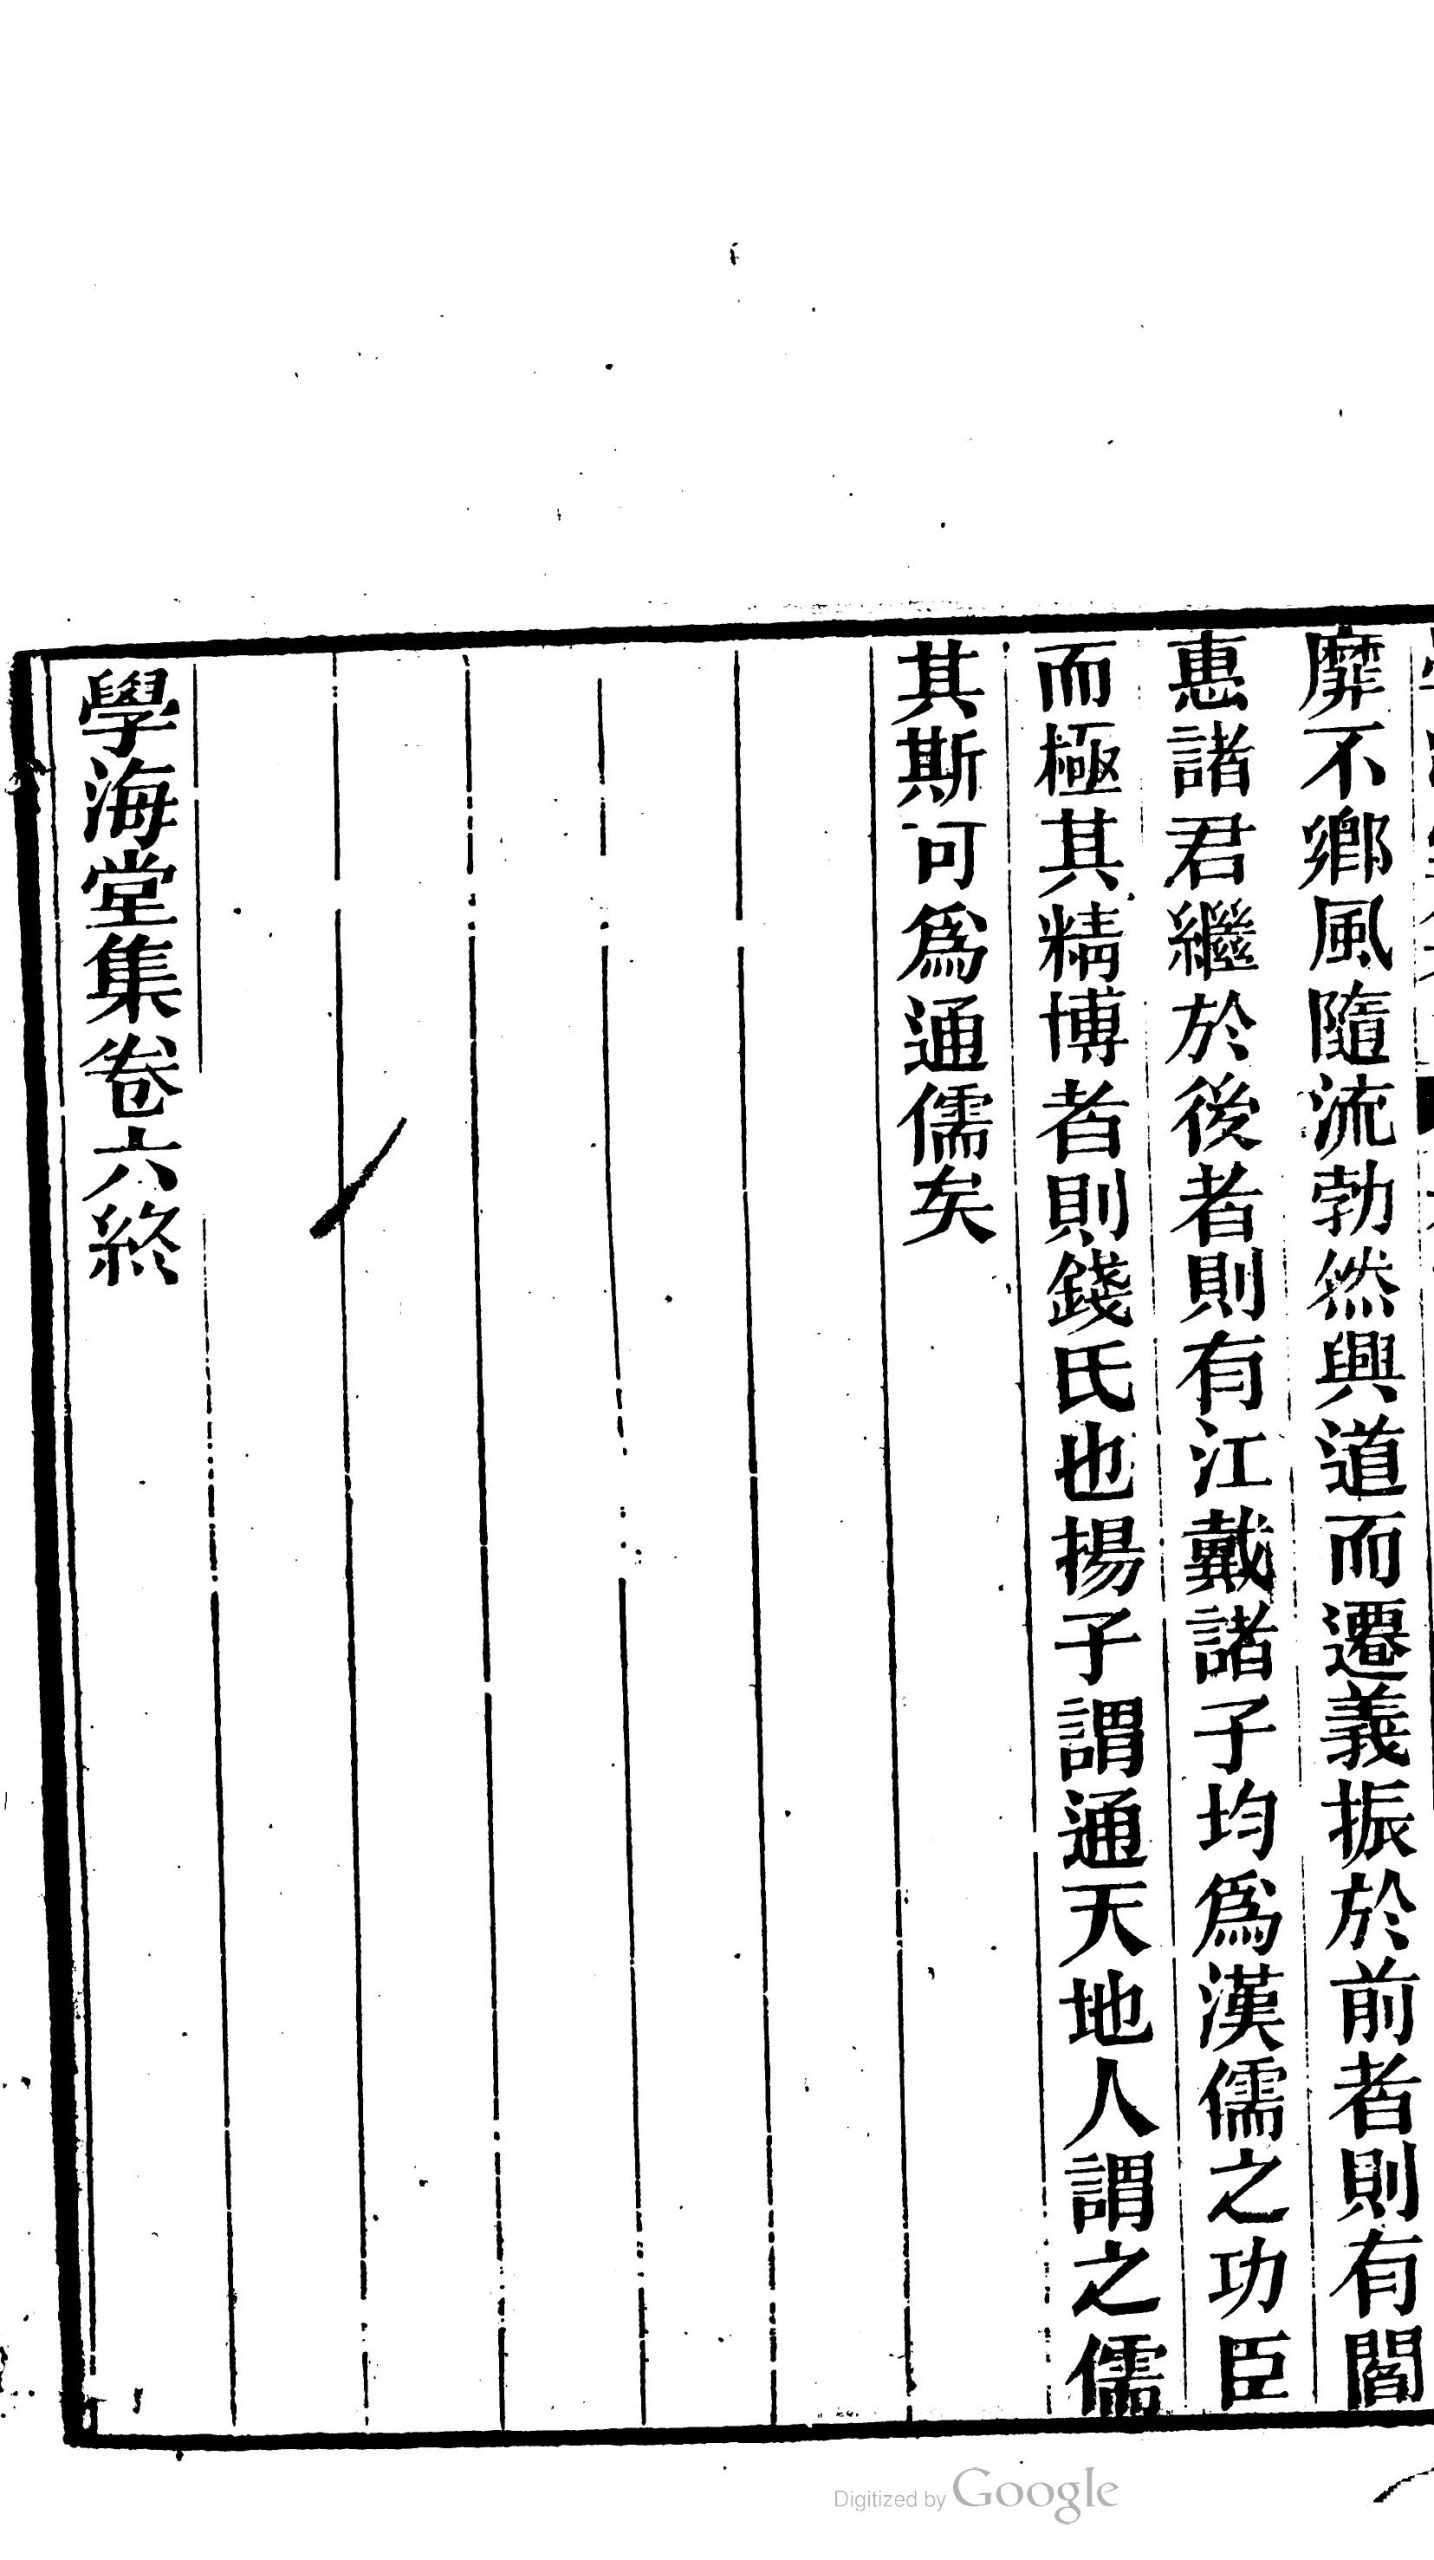 靡不鄉風隨流勃然興道而遷義振於前者則有閻
惠諸君繼於後者則有江戴諸子均爲漢儒之功臣
而極其精博者則錢氏也揚子謂通天地人謂之儒
其斯可爲通儒矣
學海堂集卷六終
Digitized by Google